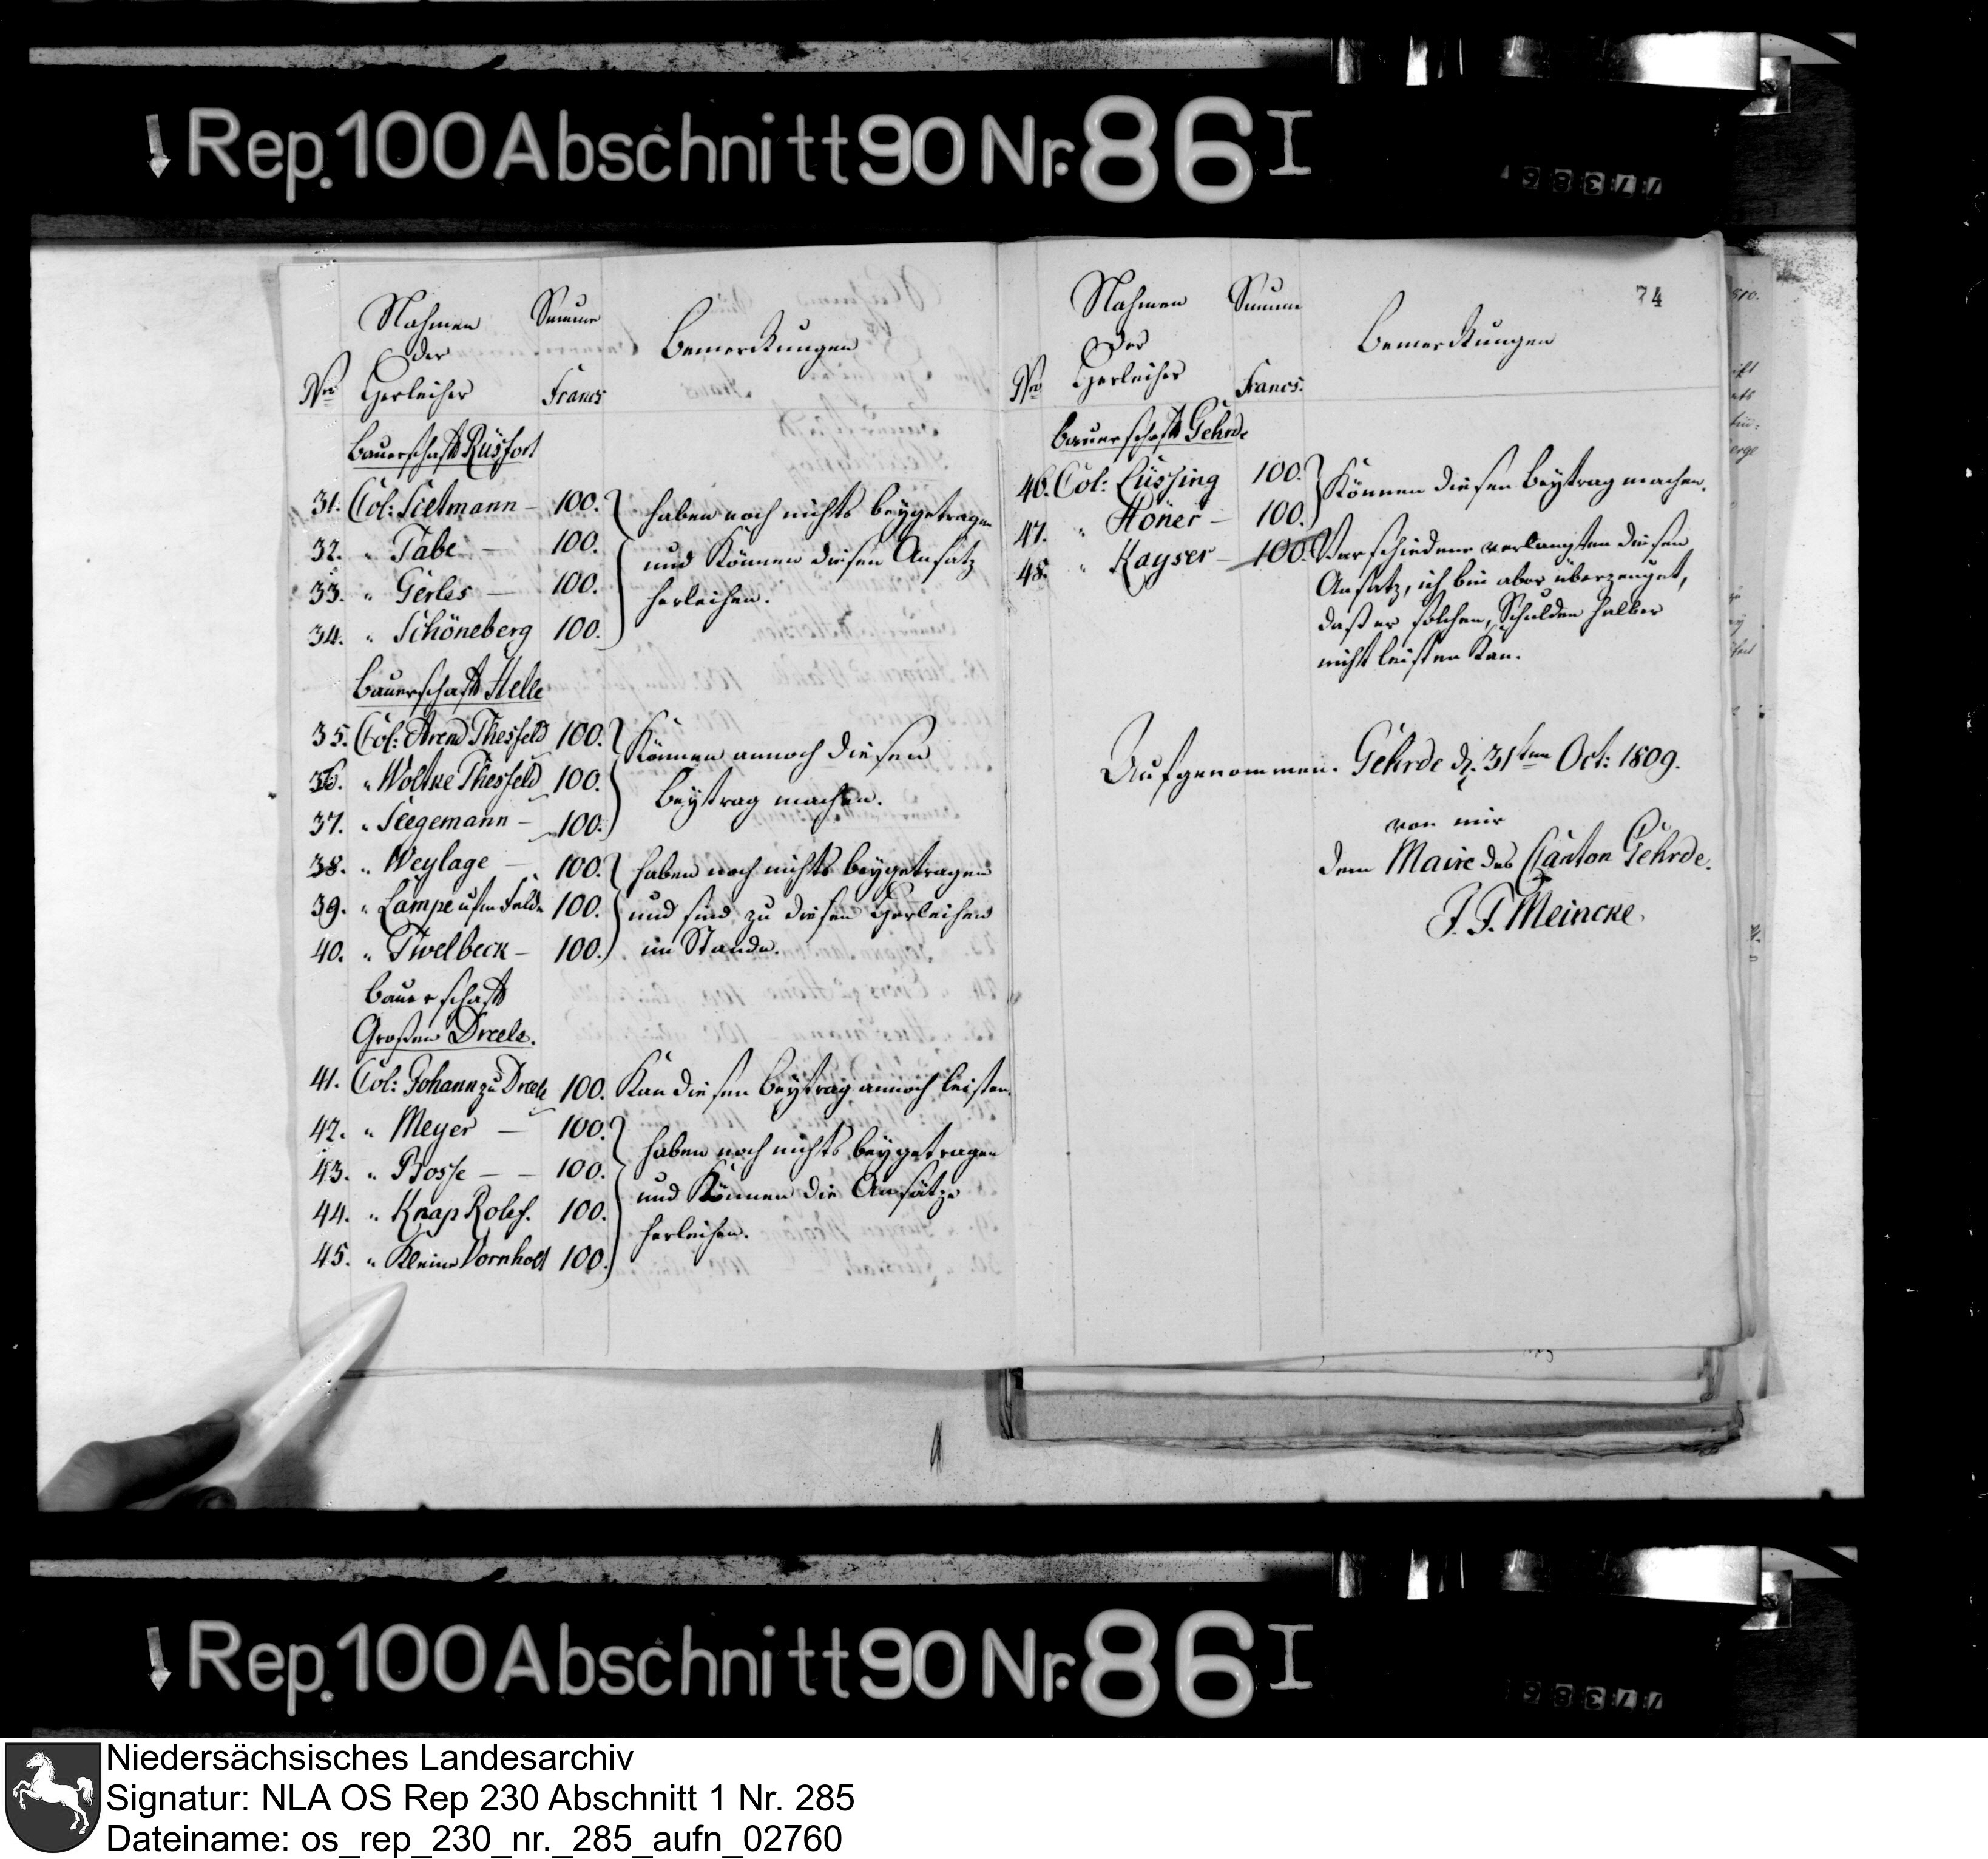 Rep. 100 Abschnitt 90 Nr. 86 I
Nahmen
der
Herleiher
Nro
Summe
Francs
Bemerkungen
Bauerschaft Rüsfort
31. Col: Tietmann — 100.
32. " Tabe — 100.
33. " Gerles — 100.
34. " Schöneberg 100.
haben noch nichts beygetragen
und können diesen Ansatz
herleihen.
Bauerschaft Helle
35. Col: Arend Thesfeld 100.
36. " Woltke Thesfeld 100.
37. " Stegemann — 100.
Können annoch diesen
Beytrag machen.
38. " Weylage — 100.
39. " Lampe ufm Felde 100.
40. " Twelbeck — 100.
haben noch nichts beygetragen
und sind zu diesen Herleihen
im Stande.
Bauerschaft
Großen Drele.
41. Col: Johann zu Drele 100. Kan diesen Beytrag annoch leisten.
42. " Meyer — 100.
43. " Bosse — — 100.
44. " Knap Rolef. 100.
45. " Kleine Vornholt 100.
haben noch nichts beygetragen
und können die Ansätze
herleihen.
74
Nahmen
der
Herleiher
Nro
Summe
Francs.
Bemerkungen
Bauerschaft Gehrde
46. Col: Lüssing 100.
47. " Höner — 100.
Können diesen Beytrag machen.
48. " Kayser — 100. Verschiedene verlangten diesen
Ansatz, ich bin aber überzeuget,
daß er solchen, Schulden halber
nicht leisten kan.
Aufgenommen. Gehrde d. 31ten Oct: 1809.
von mir
dem Maire des Canton Gehrde.
J. F. Meincke.
Rep. 100 Abschnitt 90 Nr. 86 I
Niedersächsisches Landesarchiv
Signatur: NLA OS Rep 230 Abschnitt 1 Nr. 285
Dateiname: os_rep_230_nr._285_aufn_02760